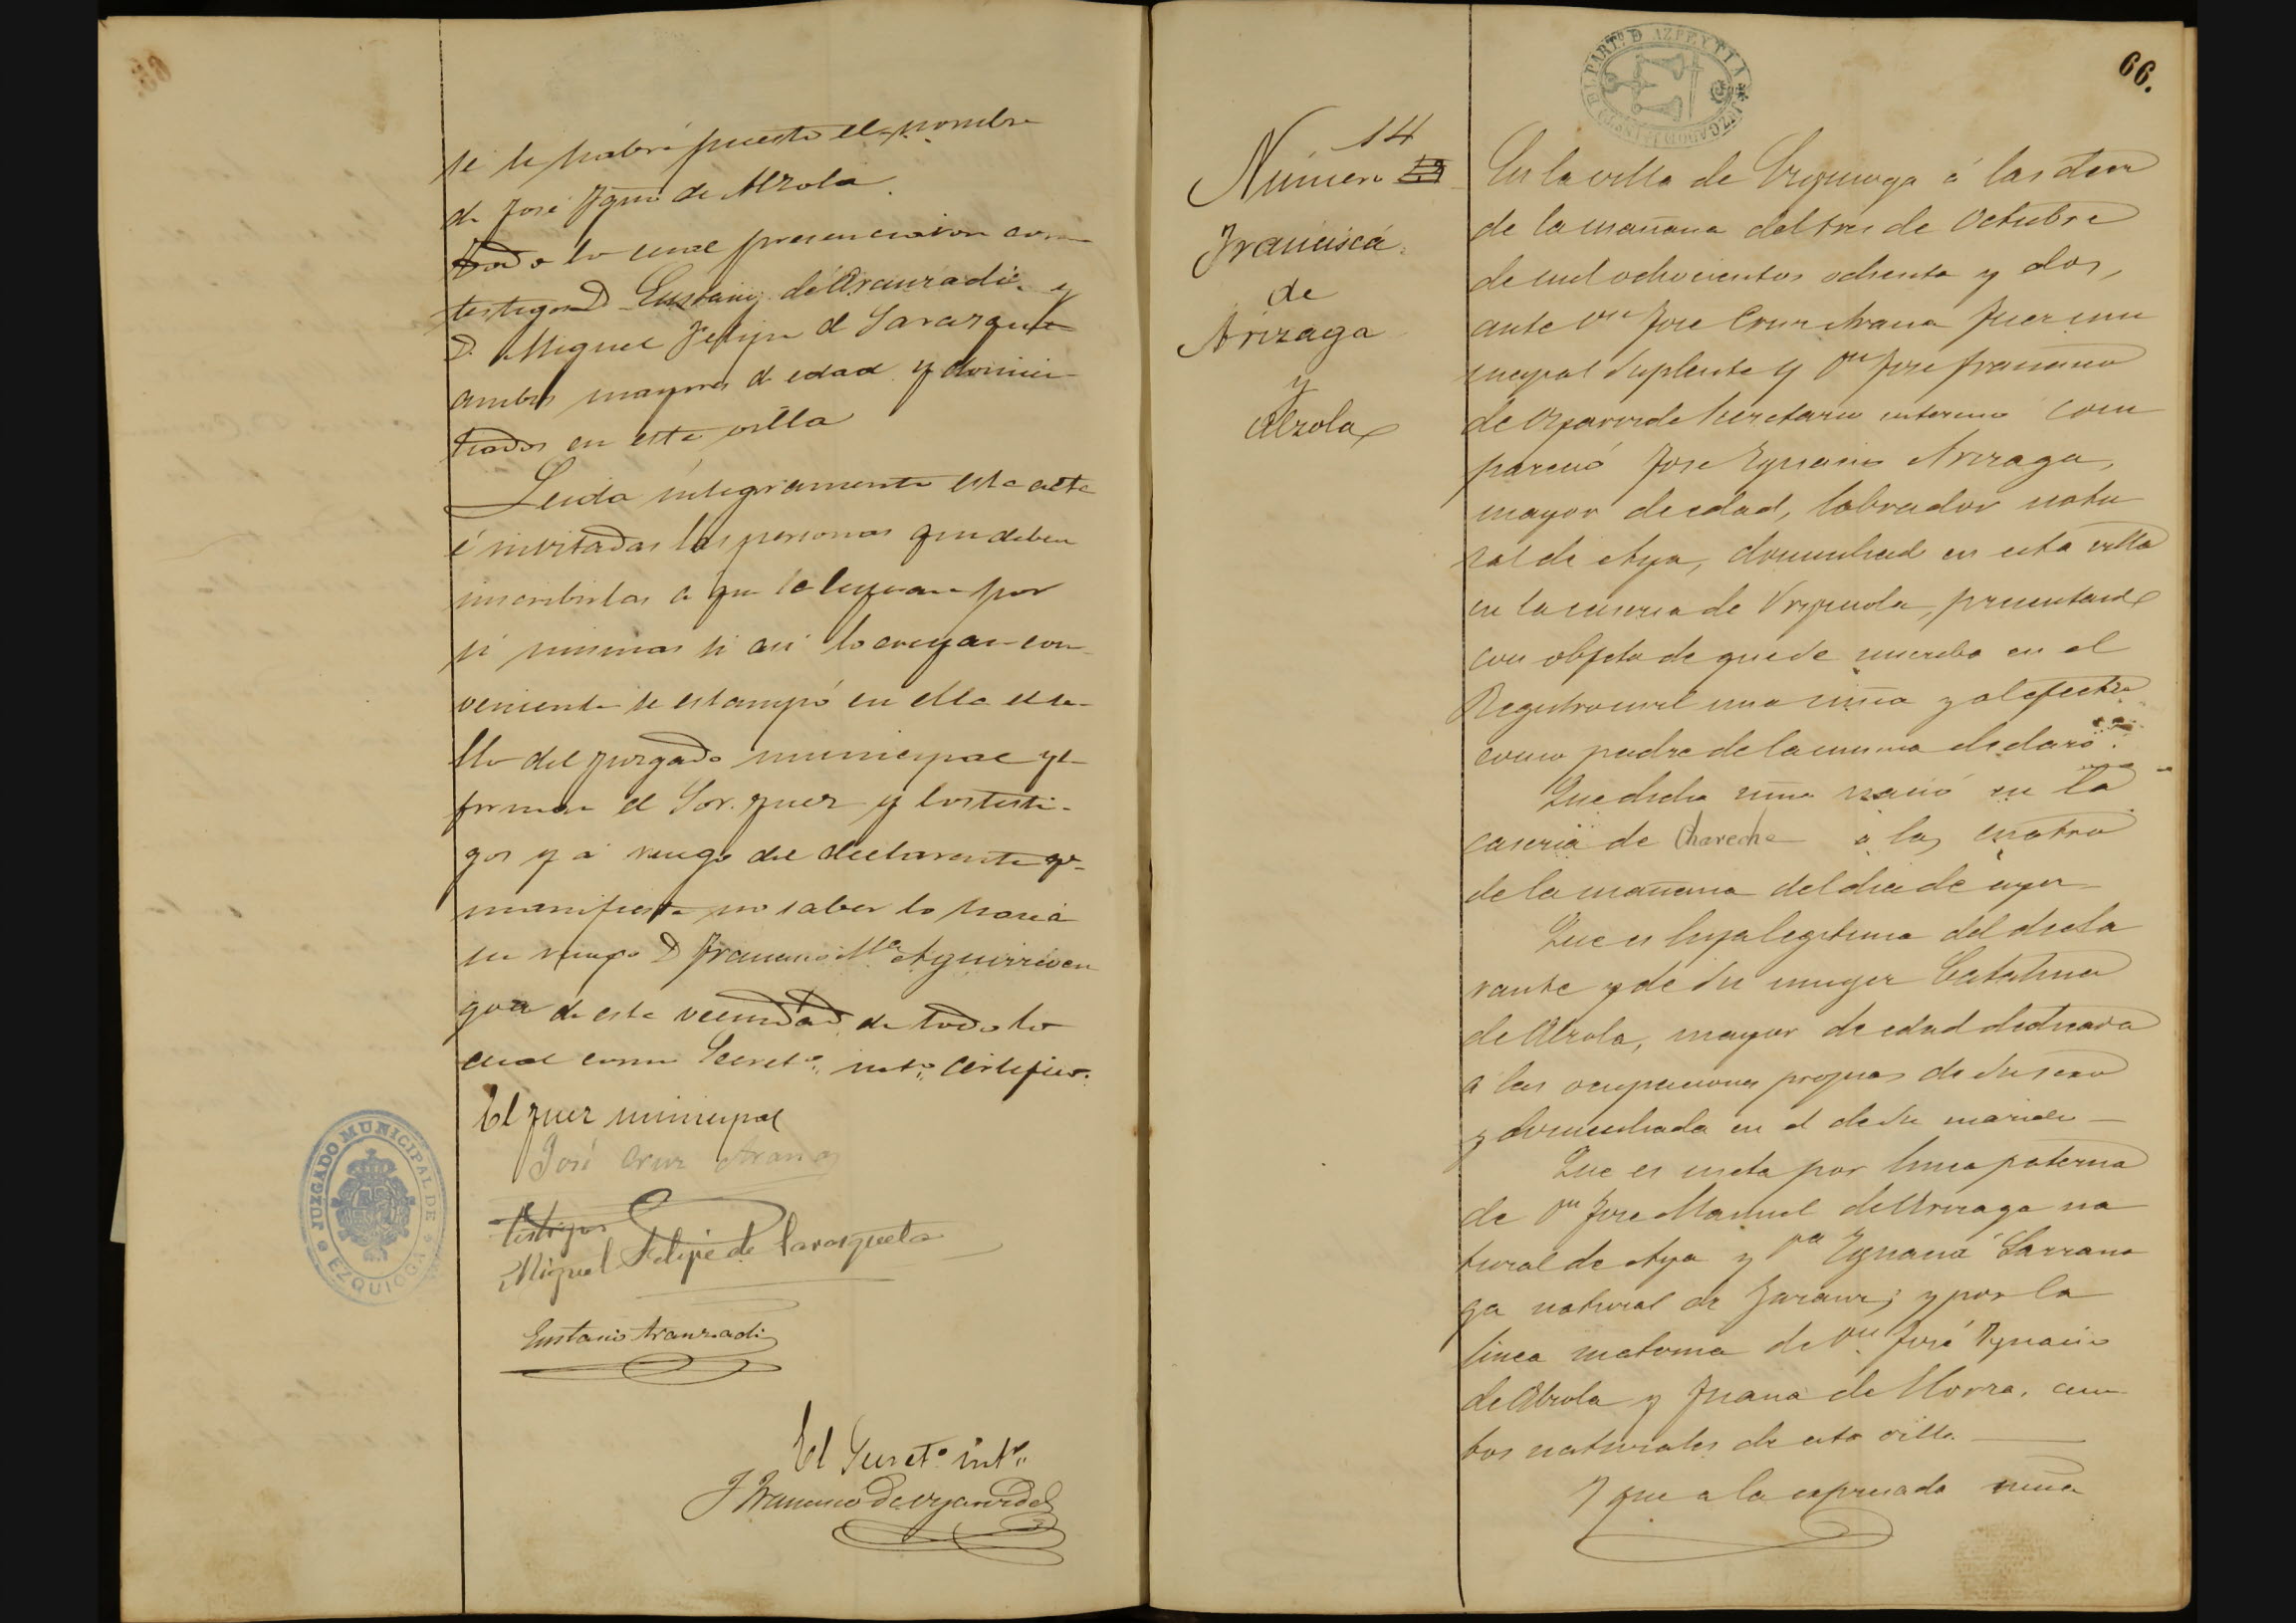 se le habrá puesto el nombre
de José Ygnº de Alzola.
todo lo cual presenciaron como
testigos D. Eustaqº de Aranzadi y
D. Miguel Felipe de Sarasqueta
ambos mayores de edad y domici-
liados en esta villa
Leida integramente esta acta
é invitadas las personas que deben
suscribirlas á que la leyeran por
si mismas si asi lo creyan con-
veniente se estampó en ella el se-
llo del juzgado municipal y la
firman el Sor. Juez y los testi-
gos y á ruego del declarante qe
manifiesta no saber lo hacia
su ruego D. Francisco Mª Aguirreven
goa de esta vecindad de todo lo
cual como Secretº intº certifico.
El Juez municipal
José Cruz Arana
Testigos
Miguel Felipe de Sarasqueta
Eustasio Aranzadi
El Secretº intº
J. Francisco de
JUZGADO MUNICIPAL DE EZQUIOGA
66.
JUZGADO DE INSTº DEL PARTº D AZPEYTIA
14
Número
Francisca
de
Arizaga
y
Alzola
En la villa de Ezquioga á las diez
de la mañana del tres de Octubre
de mil ochocientos ochenta y dos,
ante Dn Jose Cruz Arana Juez mu
nicipal Suplente y Dn Jose Francisco
de Secretario interino com
pareció Jose Ygnacio Arizaga,
mayor de edad, labrador natu
ral de Aya, domiciliado en esta villa
en la caseria de presentando
con objeto de que se inscriba en el
Registro civil una niña y al efecto
como padre de la misma declaró:
Que dicha niña nació en la
caseria de Chareche á las cuatro
de la mañana del dia de ayer
Que es hija legitima del decla
rante y de su muger Catalina
de Alzola, mayor de edad dedicada
a las ocupaciones propias de su sexo
y domiciliada en el de su marido
Que es nieta por linea paterna
de Dn Jose Manuel de Arizaga na
tural de Aya y Dª Ygnacia Larrana
ga natural de Zarauz; y por la
linea materna de Dn José Ygnacio
de Alzola y Juana de am
bos naturales de esta villa.
Y que a la expresada niña